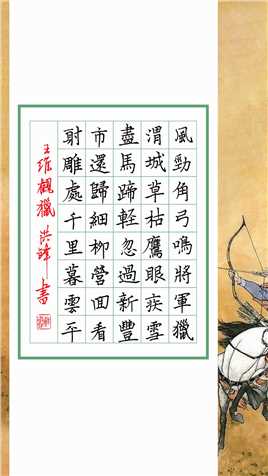 風勁角弓鳴將軍獵
渭城草枯鷹眼疾雪
盡馬蹄輕忽過新豐
市還歸細柳營回看
射雕處千里暮雲平
王維觀獵 洪鋒書